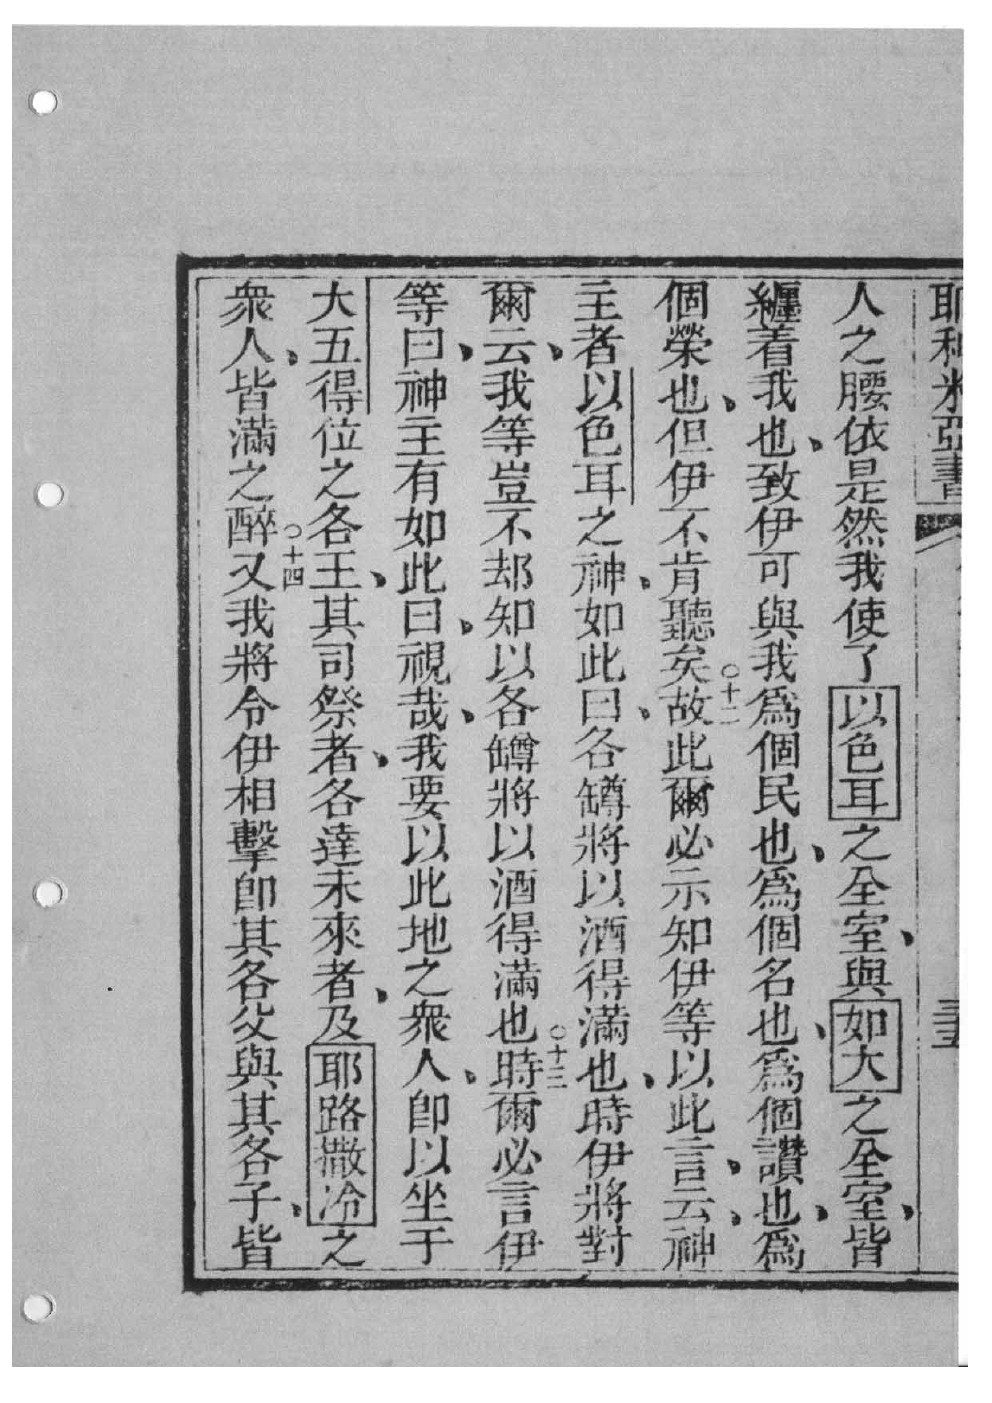 耶利米亞書
三五
人之腰依是然我使了以色耳之全室、與如大之全室、皆
纏着我也、致伊可與我爲個民也、爲個名也、爲個讚也、爲
個榮也、但伊不肯聽矣○十二故此爾必示知伊等以此言、云、神
主者以色耳之神、如此曰、各罇將以酒得滿也、時伊將對
爾云、我等豈不却知以各罇將以酒得滿也○十三時爾必言伊
等曰、神主有如此曰、視哉、我要以此地之衆人、卽以坐于
大五得位之各王、其司祭者、各達未來者、及耶路撒冷之
衆人、皆滿之醉○十四又我將令伊相擊卽其各父與其各子、皆